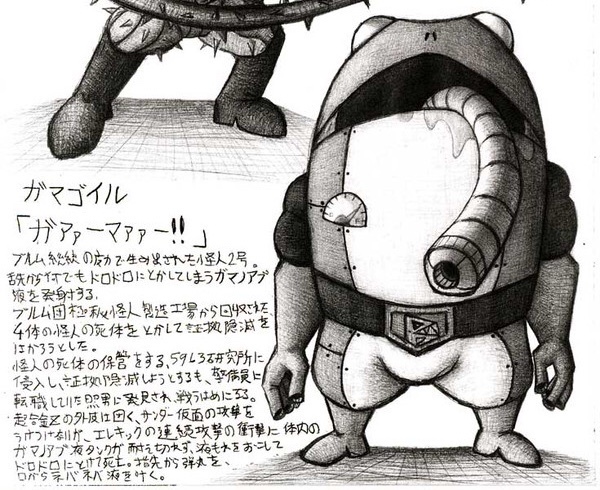 ガマゴイル
「ガァァーマァァー!!」
ブルム総統の力で生み出された怪人2号。
舌から何でもドロドロにとかしてしまうガマノアブ
液を発射する。
ブルム団極秘怪人製造工場から回収された
4体の怪人の死体をとかして証拠隠滅を
はかろうとした。
怪人の死体の保管をする、研究所に
侵入し、証拠隠滅しようとするも、警備員に
転職していた照男に発見され、戦うはめになる。
超合金Zの外皮は固く、サンダー仮面の攻撃を
うけつけないが、エレキックの連続攻撃の衝撃に体内の
ガマノアブ液タンクが耐えきれず、液もれをおこして
ドロドロにとけて死亡。指先から弾丸を、
口からネバネバ液を吐く。